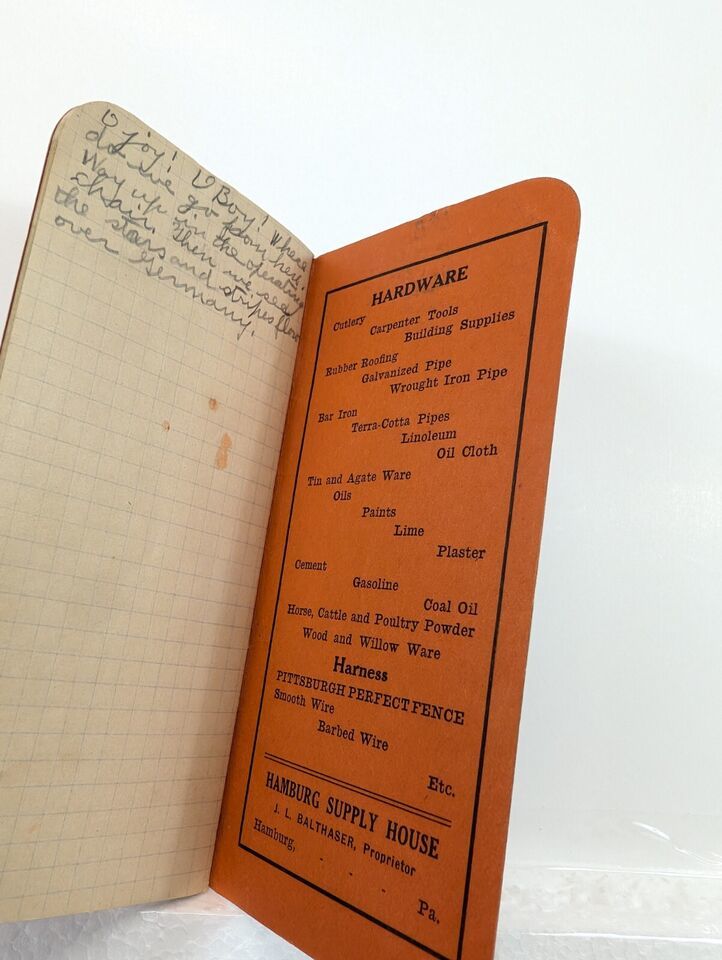 O joy! O Boy! Where
do we go from here.
Way up in the operating
chair. Then we see
the stars and stripes flow
over Germany.
HARDWARE
Cutlery
Carpenter Tools
Building Supplies
Rubber Roofing
Galvanized Pipe
Wrought Iron Pipe
Bar Iron
Terra-Cotta Pipes
Linoleum
Oil Cloth
Tin and Agate Ware
Oils
Paints
Lime
Plaster
Cement
Gasoline
Coal Oil
Horse, Cattle and Poultry Powder
Wood and Willow Ware
Harness
PITTSBURGH PERFECT FENCE
Smooth Wire
Barbed Wire
Etc.
HAMBURG SUPPLY HOUSE
J. L. BALTHASER, Proprietor
Hamburg, - - - Pa.